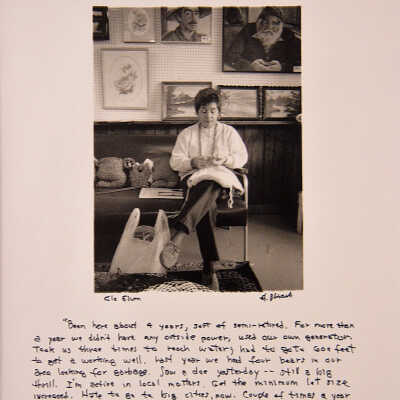 Cle Elum
"Been here about 4 years, sort of semi-retired. For more than
a year we didn't have any outside power, used our own generator.
Took us three times to reach water; had to go to 600 feet
to get a working well. Last year we had four bears in our
area looking for garbage. Saw a doe yesterday -- still a big
thrill. I'm active in local matters. Got the minimum lot size
increased. Hate to go to big cities, now. Couple of times a year